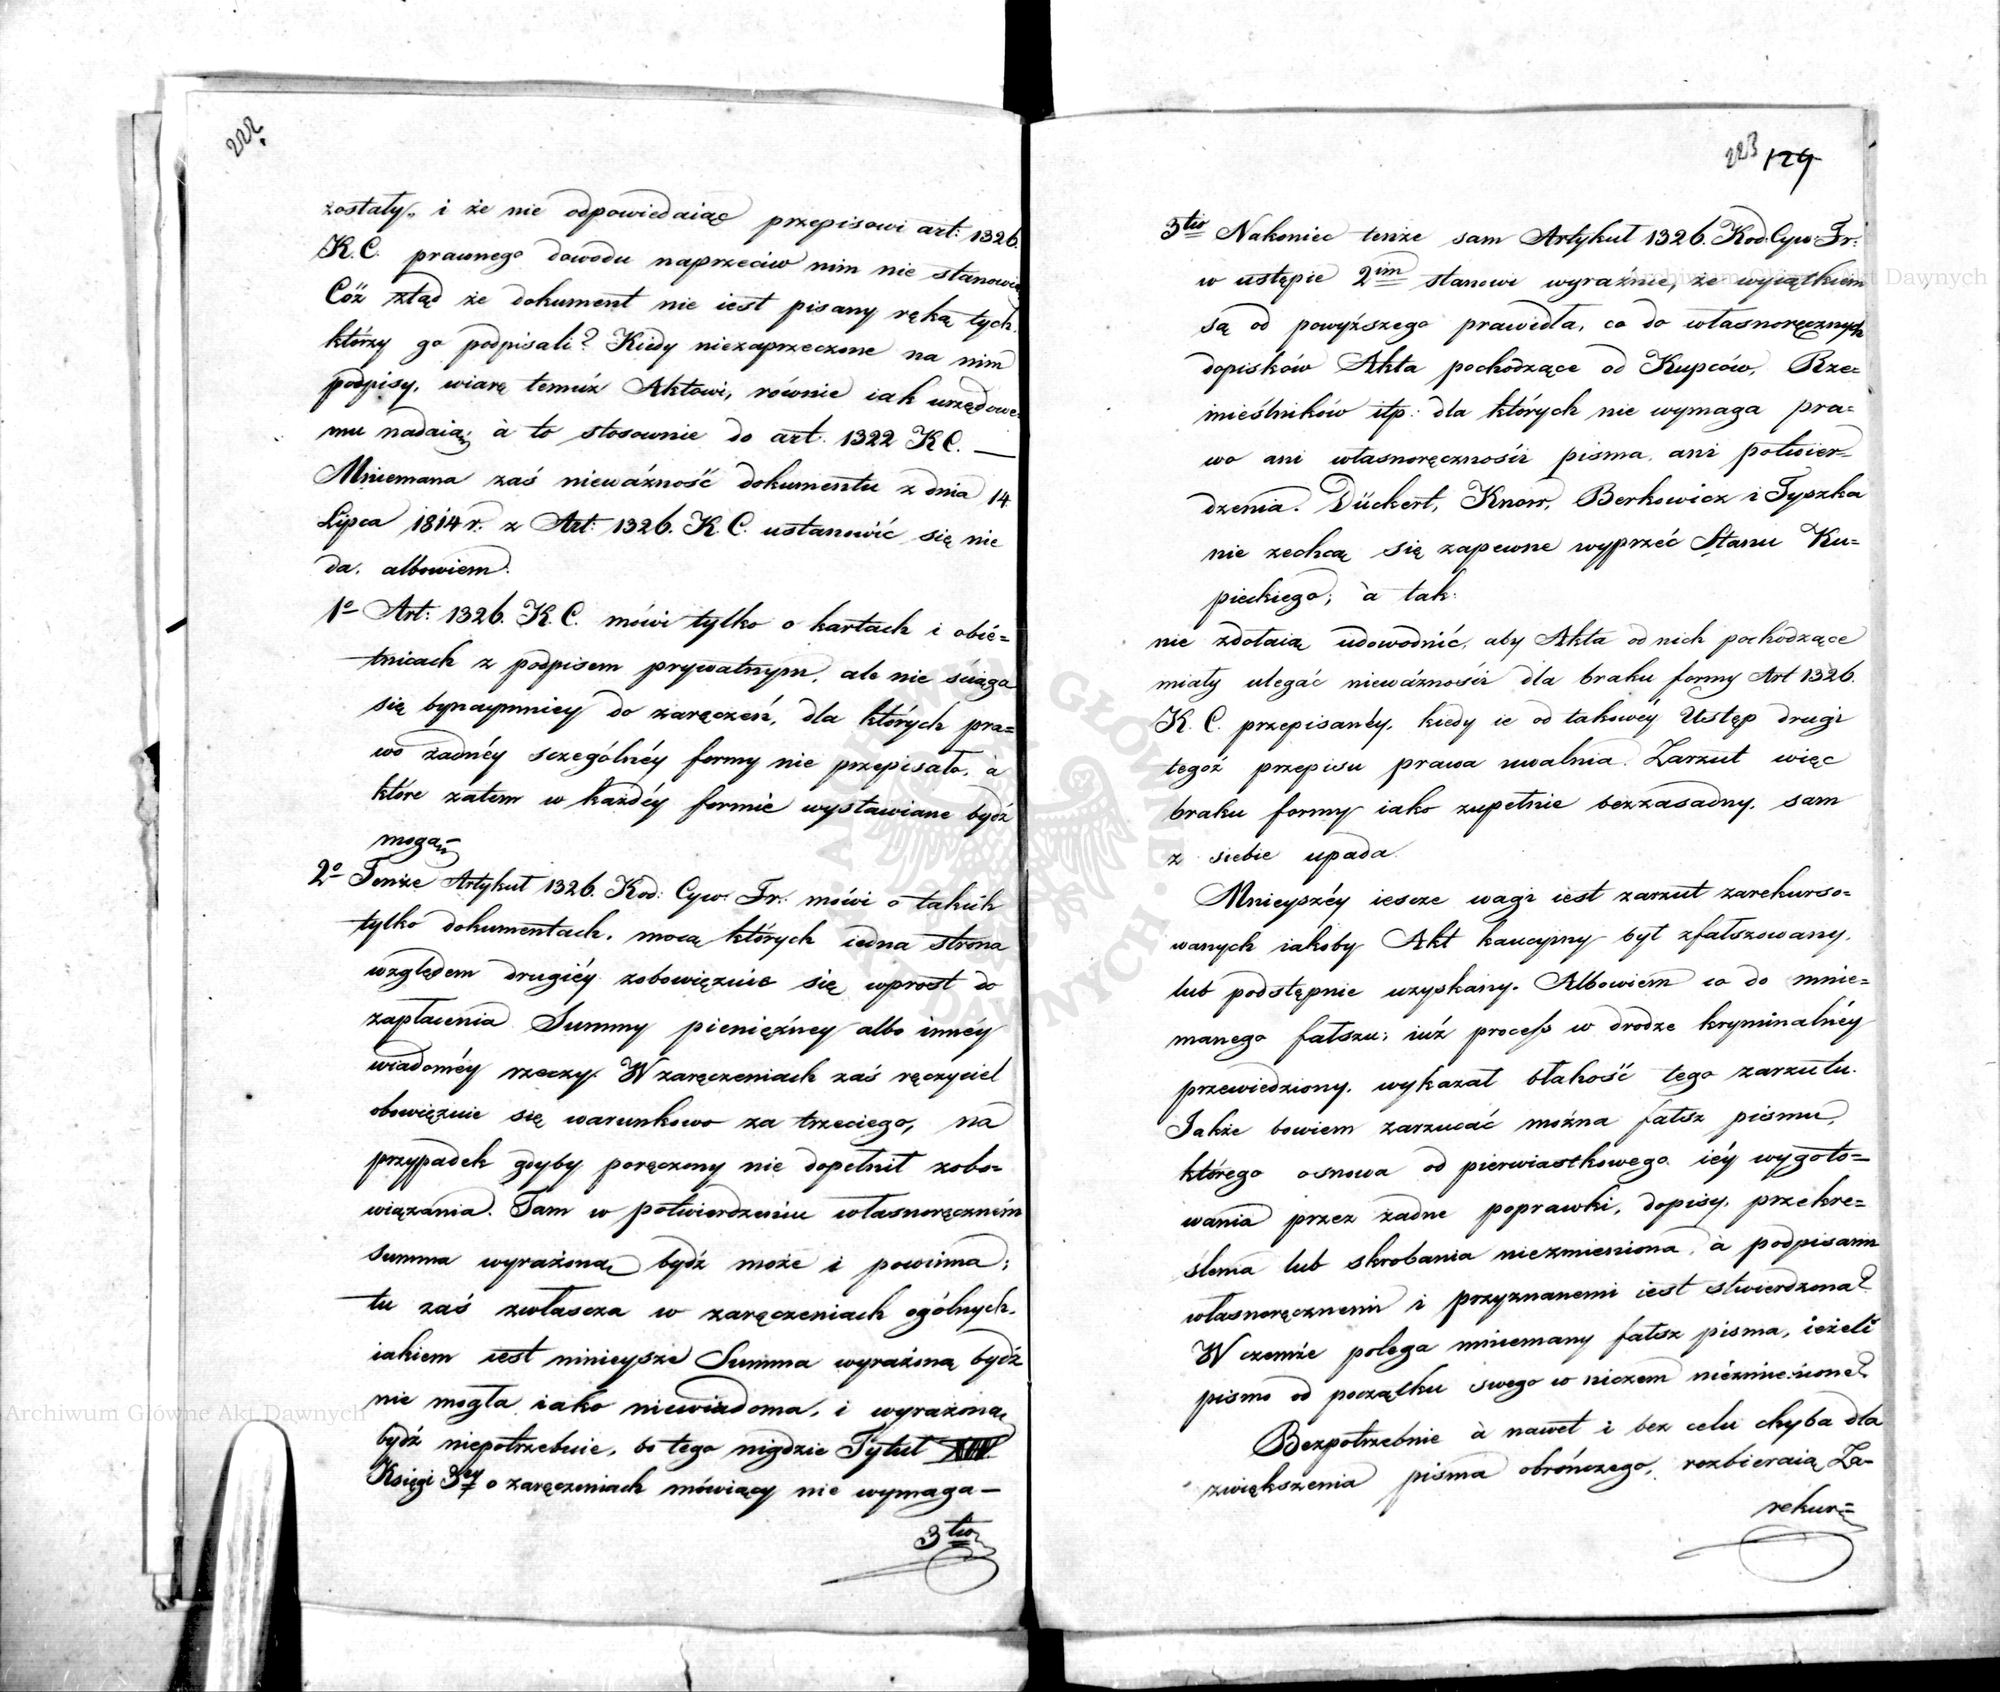 222.
zostały, i że nie odpowiedaiąc przepisowi art: 1326.
K. C. prawnego dowodu naprzeciw nim nie stanowią
Cóż ztąd że dokument nie iest pisany ręką tych
którzy go podpisali? Kiedy niezaprzeczone na nim
podpisy, wiarę temuż Aktowi, równie iak urzędowe=
mu nadaią; à to stosownie do art. 1322 K C. —
Mniemana zaś nieważność dokumentu z dnia 14
Lipca 1814 r. z Art: 1326. K. C. ustanowić się nie
da, albowiem:
1º Art: 1326. K. C. mówi tylko o kartach i obie=
tnicach z podpisem prywatnym, ale nie ściąga
się bynaymniey do zaręczeń, dla których pra=
wo żadnéy szczególnéy formy nie przepisało, à
które zatem w każdéy formie wystawiane bydź
mogą —
2º Tenże Artykuł 1326. Kod: Cyw. Fr. mówi o takich
tylko dokumentach, mocą których iedna strona
względem drugiéy zobowięzuie się wprost do
zapłacenia Summy pieniężney albo innéy
wiadoméy rzeczy. W zaręczeniach zaś ręczyciel
obowięzuie się warunkowo za trzeciego, na
przypadek gdyby poręczony nie dopełnił zobo=
wiązania. Tam w potwierdzeniu własnoręczném
summa wyrażoną bydź może i powinna;
tu zaś zwłascza w zaręczeniach ogólnych,
iakiem iest ninieysze Summa wyrażoną bydź
nie mogła iako niewiadoma, i wyrażoną
bydź niepotrzebuie, bo tego nigdzie Tytuł XIV.
Księgi 3ey o zaręczeniach mówiący nie wymaga —
3tio
223 124
3tio Nakoniec tenże sam Artykuł 1326. Kod. Cyw: Fr:
w ustępie 2im stanowi wyraźnie, że wyiątkiem
są od powyższego prawidła, co do własnoręcznych
dopisków Akta pochodzące od Kupców, Rze=
mieślników itp: dla których nie wymaga pra=
wo ani własnoręczności pisma, ani potwier=
dzenia. Dückert, Knorr, Berkowicz i Tyszka
nie zechcą się zapewne wyprzeć Stanu Ku=
pieckiego; à tak
nie zdołaią udowodnić, aby Akta od nich pochodzące
miały ulegać nieważności dla braku formy Art 1326.
K. C. przepisanéy, kiedy ie od takowéy Ustęp drugi
tegoż przepisu prawa uwalnia. Zarzut więc
braku formy iako zupełnie bezzasadny, sam
z siebie upada.
Mnieyszéy iescze wagi iest zarzut zarekurso=
wanych iakoby Akt kaucyiny był zfałszowany,
lub podstępnie uzyskany. Albowiem co do mnie=
manego fałszu; iuż process w drodze kryminalnéy
przewiedziony, wykazał błahość tego zarzutu.
Jakże bowiem zarzucać można fałsz pismu,
którego osnowa od pierwiastkowego iéy wygoto=
wania przez żadne poprawki, dopisy, przekre=
ślenia lub skrobania niezmieniona, à podpisami
własnoręcznemi i przyznanemi iest stwierdzona?
W czemże polega mniemany fałsz pisma, ieżeli
pismo od początku swego w niczem niezmienione?
Bezpotrzebnie à nawet i bez celu chyba dla
zwiększenia pisma obrończego, rozbieraią Za=
rekur=
Archiwum Główne Akt Dawnych
Archiwum Główne Akt Dawnych
ARCHIWUM GŁÓWNE AKT DAWNYCH